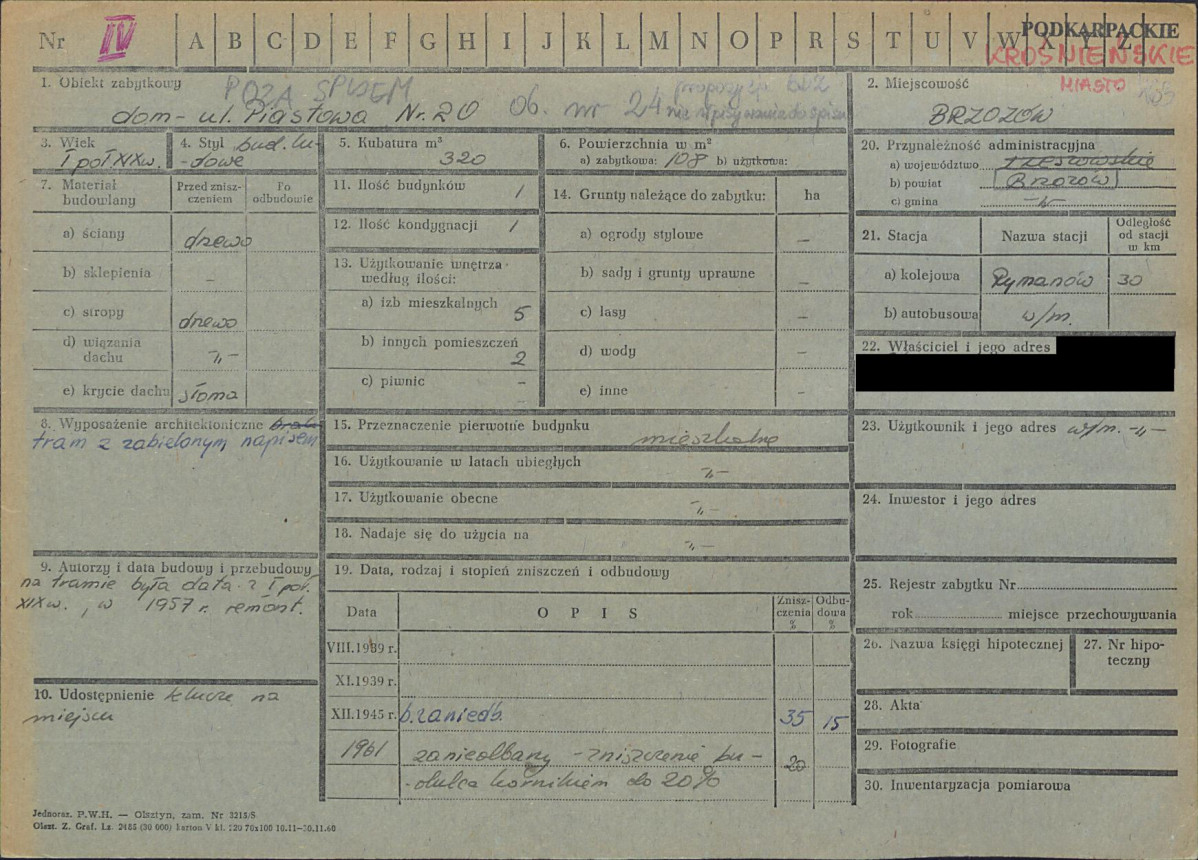 Nr IV A B C D E F G H I J K L M N O P R S T U V W X Y Z
PODKARPACKIE
KROŚNIEŃSKIE
MIASTO
1. Obiekt zabytkowy POZA SPISEM
dom - ul. Piastowa Nr. 20 Ob. nr 24
propozycja
nie wpisywania do spisu
2. Miejscowość
BRZOZÓW
3. Wiek
I poł. XIX w.
4. Styl bud. lu-
-dowe
5. Kubatura m³
320
6. Powierzchnia w m²
a) zabytkowa: 108 b) użytkowa:
20. Przynależność administracyjna
a) województwo rzeszowskie
b) powiat Brzozów
c) gmina -„-
7. Materiał budowlany
Przed znisz-
czeniem
Po
odbudowie
a) ściany drewo
b) sklepienia –
c) stropy drewo
d) wiązania
dachu -„-
e) krycie dachu słoma
11. Ilość budynków 1
12. Ilość kondygnacji 1
13. Użytkowanie wnętrza
według ilości:
a) izb mieszkalnych 5
b) innych pomieszczeń 2
c) piwnic –
14. Grunty należące do zabytku: ha
a) ogrody stylowe –
b) sady i grunty uprawne –
c) lasy –
d) wody –
e) inne –
21. Stacja Nazwa stacji
Odległość
od stacji
w km
a) kolejowa Rymanów 30
b) autobusowa w/m.
22. Właściciel i jego adres
8. Wyposażenie architektoniczne
tram z zabielonym napisem
15. Przeznaczenie pierwotne budynku mieszkalne
16. Użytkowanie w latach ubiegłych -„-
17. Użytkowanie obecne -„-
18. Nadaje się do użycia na -„-
23. Użytkownik i jego adres w/m. -„-
24. Inwestor i jego adres
9. Autorzy i data budowy i przebudowy
na tramie była data z I poł.
XIX w., w 1957 r. remont.
19. Data, rodzaj i stopień zniszczeń i odbudowy
Data OPIS
Znisz-
czenia
%
Odbu-
dowa
%
VIII.1939 r.
XI.1939 r.
XII.1945 r. b. zaniedb. 35 15
1961 zaniedbany - zniszczenie bu-
-dulca kornikiem do 20% 20
25. Rejestr zabytku Nr
rok miejsce przechowywania
26. Nazwa księgi hipotecznej
27. Nr hipo-
teczny
10. Udostępnienie klucze na
miejscu
28. Akta
29. Fotografie
30. Inwentaryzacja pomiarowa
Jednoraz. P.W.H. — Olsztyn, zam. Nr 3215/S
Olszt. Z. Graf. Lz. 2485 (30 000) karton V kl. 220 70x100 10.11—30.11.60